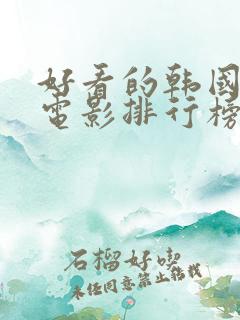 好看的韩国
电影排行榜
石榴好吃
未经同意禁止转载